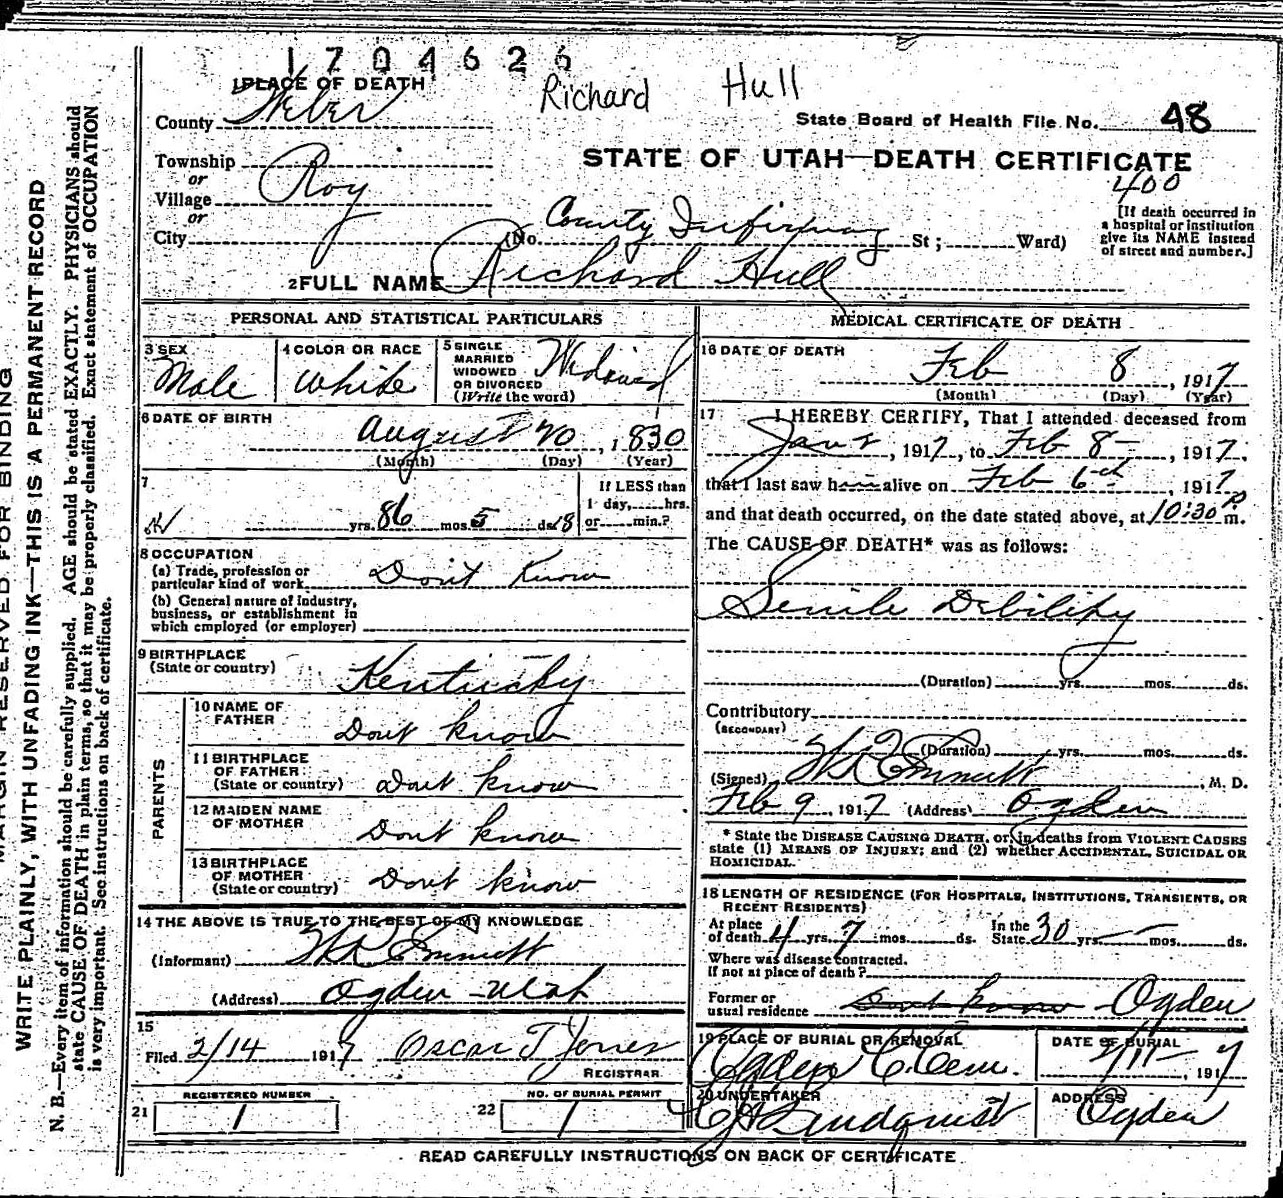 1704626
Richard Hull
1 PLACE OF DEATH
County Weber
State Board of Health File No. 48
STATE OF UTAH—DEATH CERTIFICATE
400
Township
or
Village Roy
or
City
(No. County Infirmary St; Ward)
[If death occurred in
a hospital or institution
give its NAME instead
of street and number.]
2 FULL NAME Richard Hull
PERSONAL AND STATISTICAL PARTICULARS
3 SEX
Male
4 COLOR OR RACE
White
5 SINGLE
MARRIED
WIDOWED
OR DIVORCED
(Write the word)
Widowed
6 DATE OF BIRTH
August 20, 1830
(Month) (Day) (Year)
7
yrs. 86 mos 5 ds 18
If LESS than
1 day, hrs.
or min.?
8 OCCUPATION
(a) Trade, profession or
particular kind of work Don't Know
(b) General nature of industry,
business, or establishment in
which employed (or employer)
9 BIRTHPLACE
(State or country) Kentucky
PARENTS
10 NAME OF
FATHER Dont know
11 BIRTHPLACE
OF FATHER
(State or country) Dont know
12 MAIDEN NAME
OF MOTHER Dont know
13 BIRTHPLACE
OF MOTHER
(State or country) Dont know
14 THE ABOVE IS TRUE TO THE BEST OF MY KNOWLEDGE
(Informant) Emmett
(Address) Ogden Utah
15
Filed 2/14 1917 Oscar T Jones
REGISTRAR
21 REGISTERED NUMBER
1
22 NO. OF BURIAL PERMIT
1
MEDICAL CERTIFICATE OF DEATH
16 DATE OF DEATH
Feb 8, 1917
(Month) (Day) (Year)
17 I HEREBY CERTIFY, That I attended deceased from
Jan, 1917, to Feb 8, 1917,
that I last saw him alive on Feb 6th, 1917
and that death occurred, on the date stated above, at 10:30 P m.
The CAUSE OF DEATH* was as follows:
Senile Debility
(Duration) yrs. mos. ds.
Contributory
(SECONDARY)
(Duration) yrs. mos. ds.
(Signed) Emmett, M. D.
Feb 9, 1917 (Address) Ogden
* State the DISEASE CAUSING DEATH, or, in deaths from VIOLENT CAUSES
state (1) MEANS OF INJURY; and (2) whether ACCIDENTAL, SUICIDAL OR
HOMICIDAL.
18 LENGTH OF RESIDENCE (FOR HOSPITALS, INSTITUTIONS, TRANSIENTS, OR
RECENT RESIDENTS)
At place
of death 4 yrs. 7 mos. ds. In the
State 30 yrs. — mos. ds.
Where was disease contracted.
If not at place of death?
Former or
usual residence Dont know Ogden
19 PLACE OF BURIAL OR REMOVAL
Ogden C. Cem.
DATE OF BURIAL
2/11 - 1917
20 UNDERTAKER
Lindquist
ADDRESS
Ogden
READ CAREFULLY INSTRUCTIONS ON BACK OF CERTIFICATE
MARGIN RESERVED FOR BINDING
WRITE PLAINLY, WITH UNFADING INK—THIS IS A PERMANENT RECORD
N. B.—Every item of information should be carefully supplied. AGE should be stated EXACTLY. PHYSICIANS should
state CAUSE OF DEATH in plain terms, so that it may be properly classified. Exact statement of OCCUPATION
is very important. See instructions on back of certificate.